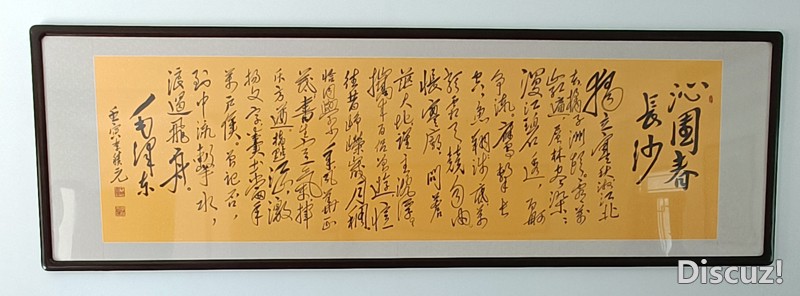 沁園春
長沙
獨立寒秋湘江北
去橘子洲頭看萬
山紅遍層林盡染
漫江碧透百舸
爭流鷹擊長
空魚翔淺底萬
類霜天競自由
悵寥廓問蒼
茫大地誰主沉浮
攜來百侶曾遊憶
往昔崢嶸歲月稠
恰同學少年風華正
茂書生意氣揮
斥方遒指點江山激
揚文字糞土當年
萬戶侯曾記否
到中流擊水
浪遏飛舟
毛澤東
壬寅
Discuz!